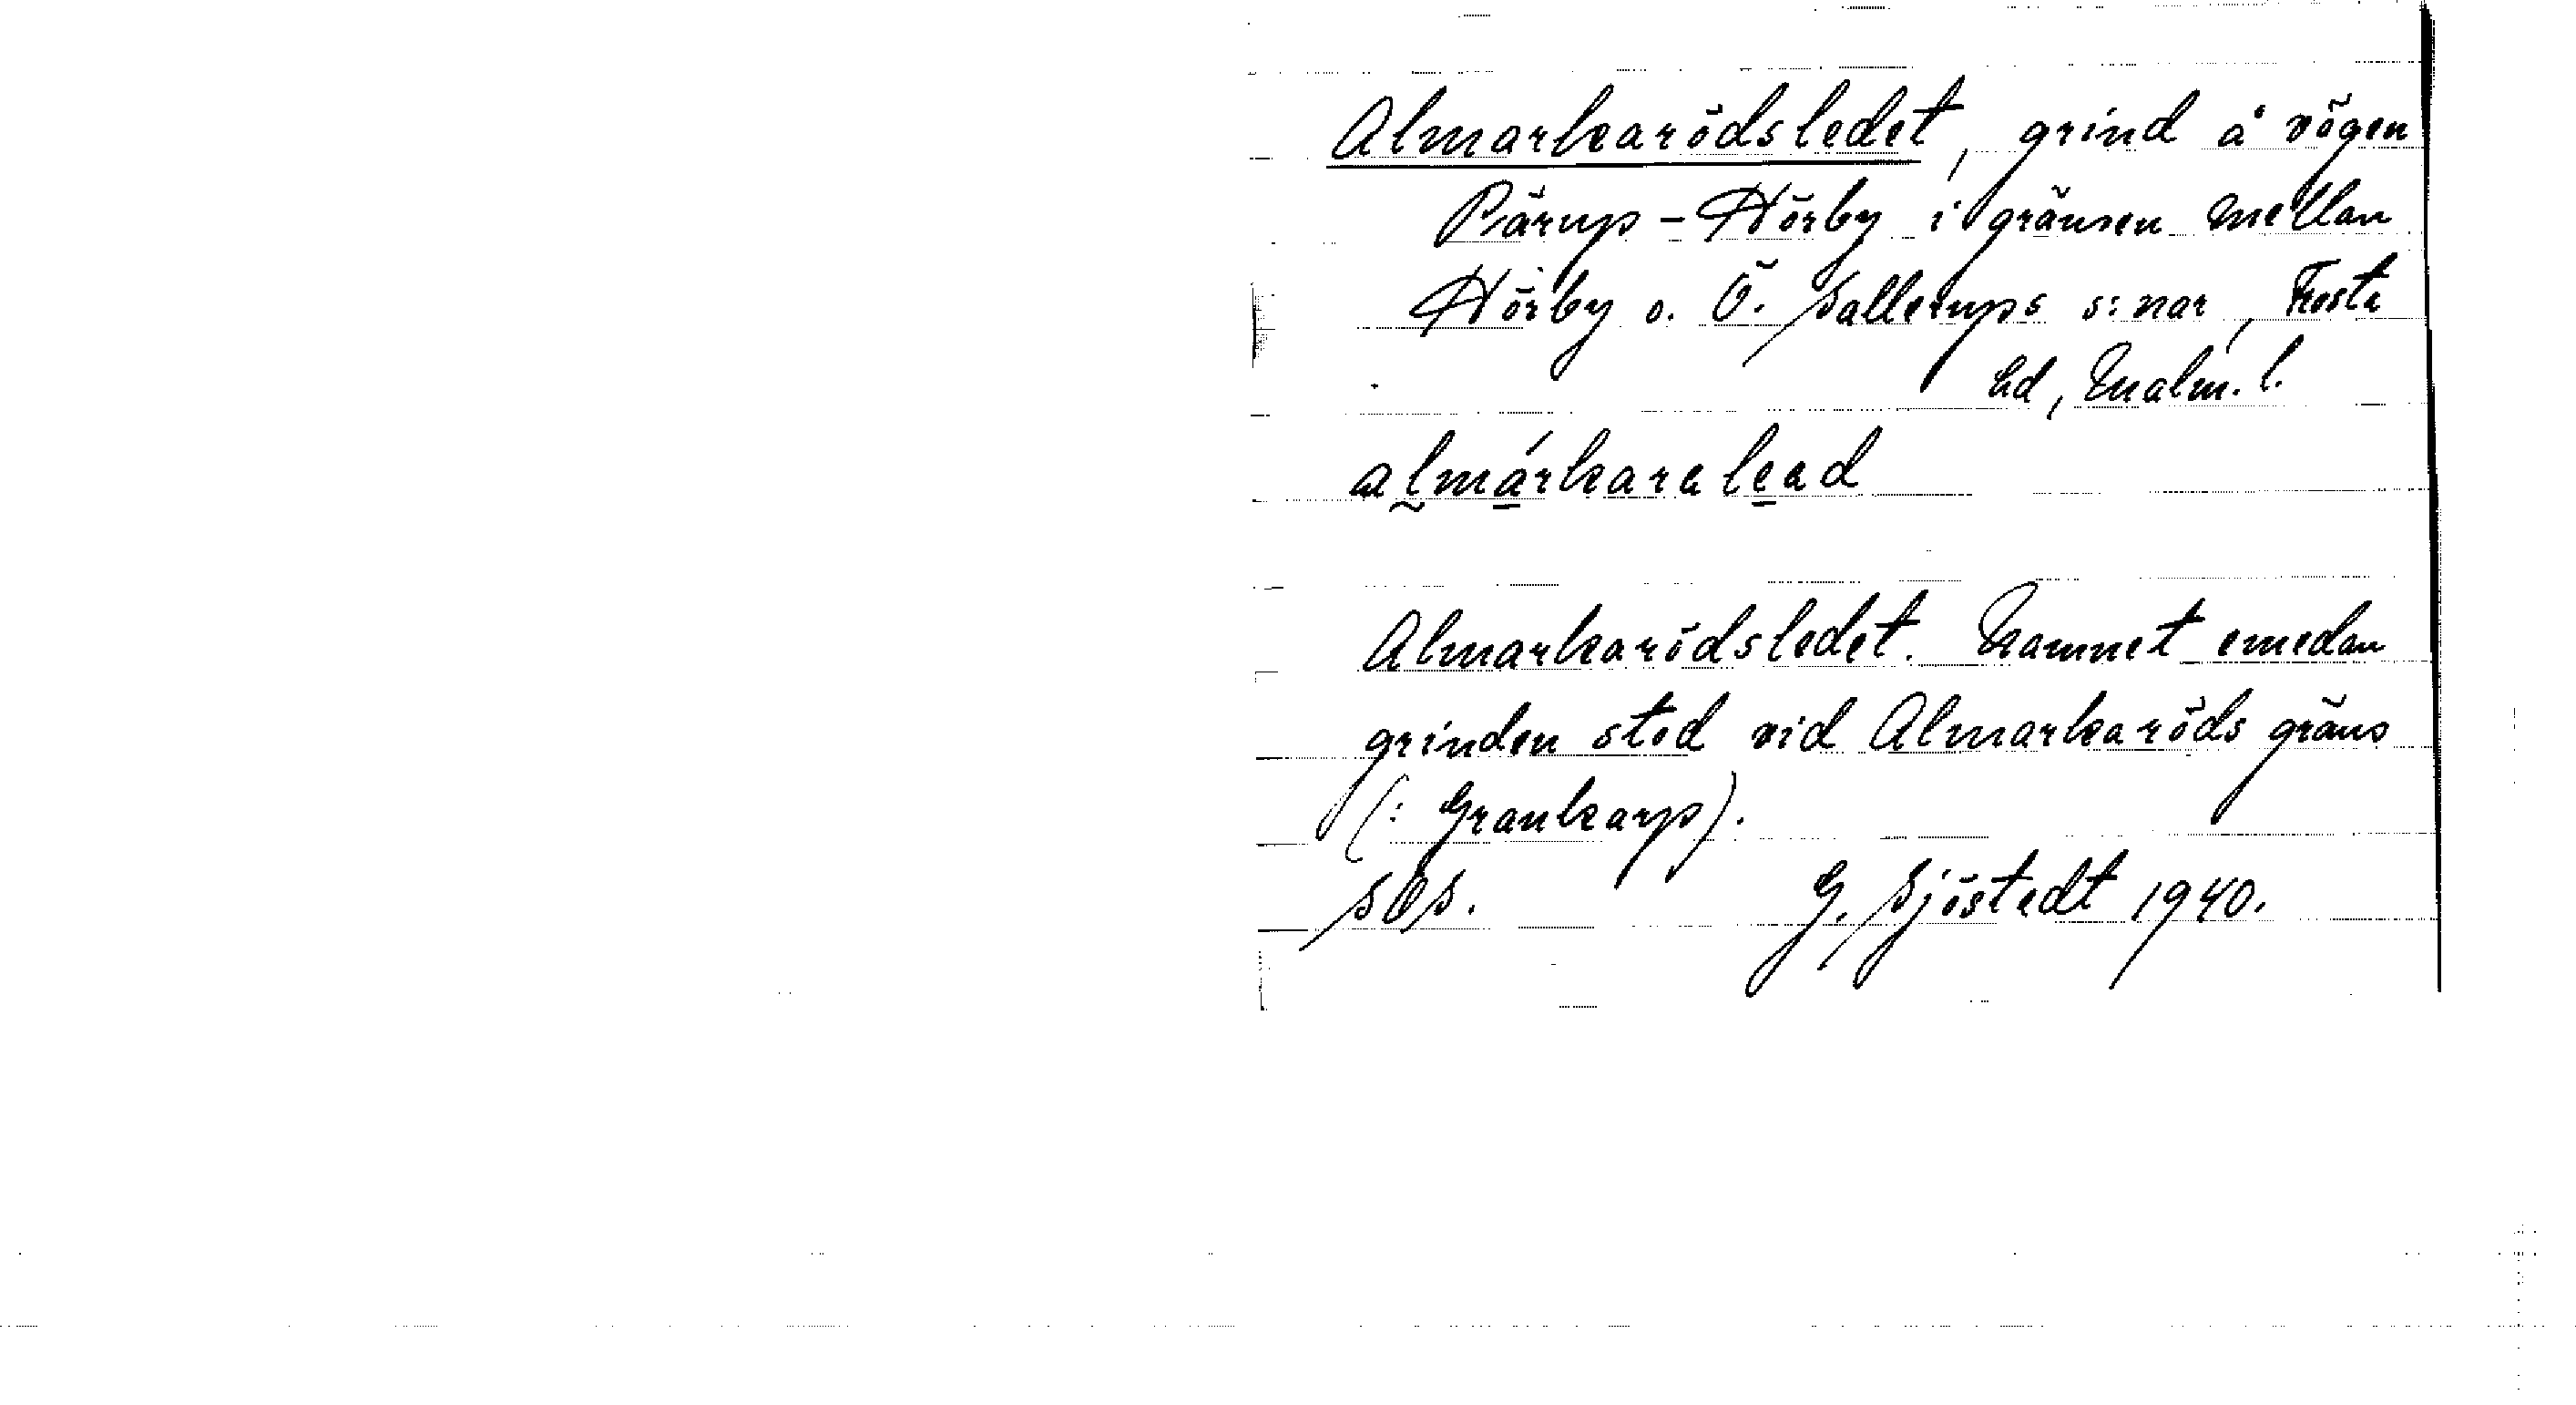 Almarkarödsledet, grind å vägen
Pärup - Hörby i gränsen mellan
Hörby o. Ö. Sallerups s:nar, Frosta
hd, Malm. l.
almárkaralead
Almarkarödsledet. Namnet emedan
grinden stod vid Almarkaröds gräns
(: Grankarp).
SOS. G. Sjöstedt 1940.